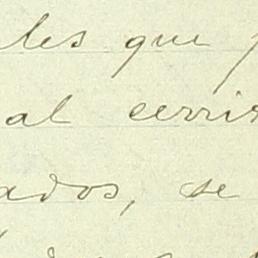 les que
al cerrir
ados, se